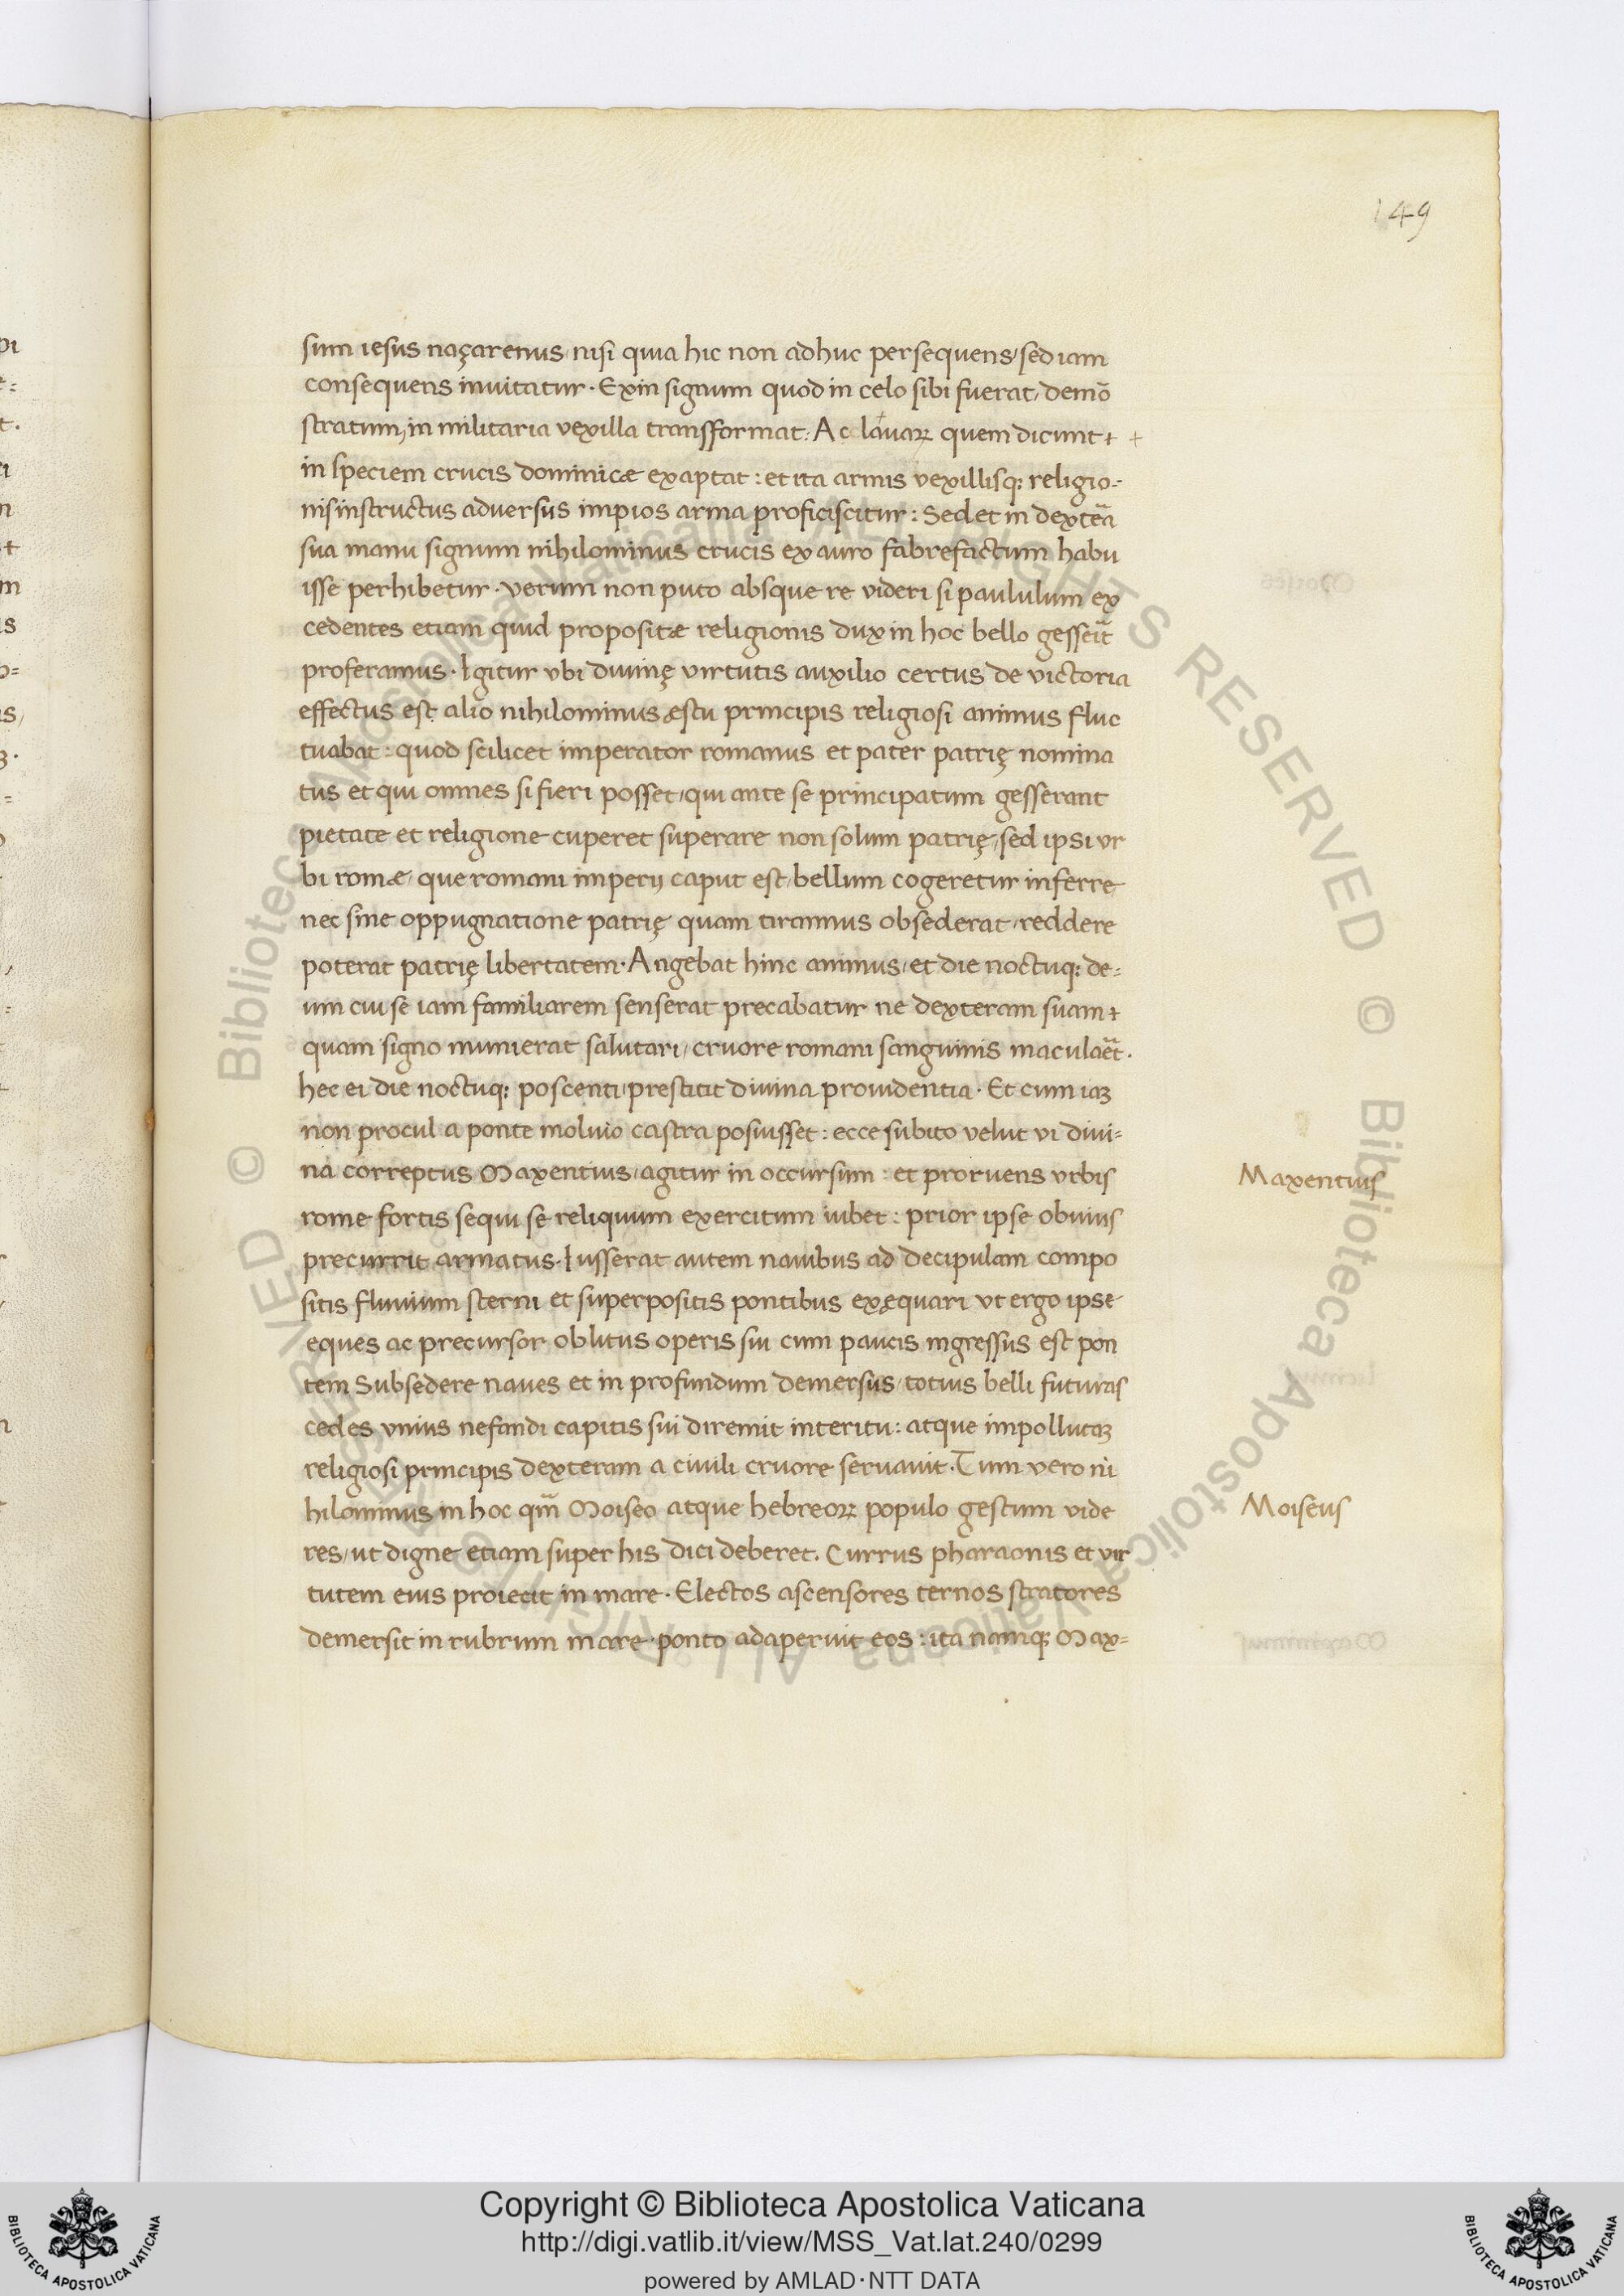 149
sum iesus naçarenus nisi quia hic non adhuc persequens/sed iam
consequens inuitatur · Exin signum quod in celo sibi fuerat/demō
stratum/in militaria vexilla transformat: Ac lauaꝝ quem dicunt+ +
in speciem crucis dominicæ exaptat : et ita armis vexillisq; religio-
nis instructus aduersus impios arma proficiscitur : Sed et in dextēa
sua manu signum nihilominus crucis ex auro fabrefactum habu
isse perhibetur · verum non puto absque re videri si paululum ex
cedentes etiam quid propositæ religionis dux in hoc bello gesseīt
proferamus · Igitur vbi diuinę virtutis auxilio certus de victoria
effectus est alio nihilominus æstu principis religiosi animus fluc
tuabat : quod scilicet imperator romanus et pater patrię nomina
tus et qui omnes si fieri posset/qui ante se principatum gesserant
pietate et religione cuperet superare non solum patrię/sed ipsi vr
bi romæ/que romani imperij caput est/bellum cogeretur inferre
nec sine oppugnatione patrię quam tirannus obsederat/reddere
poterat patrię libertatem · Angebat hinc animus/et die noctuq; de=
um cui se iam familiarem senserat precabatur ne dexteram suam+
quam signo munierat salutari/cruore romani sanguinis maculaēt.
hec ei die noctuq; poscenti/prestitit diuina prouidentia · Et cum iaʒ
non procul a ponte moluio castra posuisset : ecce subito velut vi diui=
na correptus Maxentius/agitur in occursum : et proruens vrbis
rome fortis sequi se reliquum exercitum iubet : prior ipse obuius
precurrit armatus · Iusserat autem nauibus ad decipulam compo
sitis fluuium sterni et superpositis pontibus exęquari vt ergo ipse
eques ac precursor oblitus operis sui cum paucis ingressus est pon
tem Subsedere naues et in profundum demersus/totius belli futuras
cedes vnius nefandi capitis sui diremit interitu : atque impollutaʒ
religiosi principis dexteram a ciuili cruore seruauit · Tum vero ni
hilominus in hoc qm̄ Moiseo atque hebreoꝝ populo gestum vide
res/ut digne etiam super his dici deberet. Currus pharaonis et vir
tutem eius proiecit in mare · Electos ascensores ternos stratores
demersit in rubrum mare · ponto adaperuit eos : ita namq; Max=
Maxentius
Moiseus
© Biblioteca Apostolica Vaticana ALL RIGHTS RESERVED © Biblioteca Apostolica Vaticana ALL RIGHTS RESERVED
Copyright © Biblioteca Apostolica Vaticana
http://digi.vatlib.it/view/MSS_Vat.lat.240/0299
powered by AMLAD·NTT DATA
BIBLIOTECA APOSTOLICA VATICANA
BIBLIOTECA APOSTOLICA VATICANA